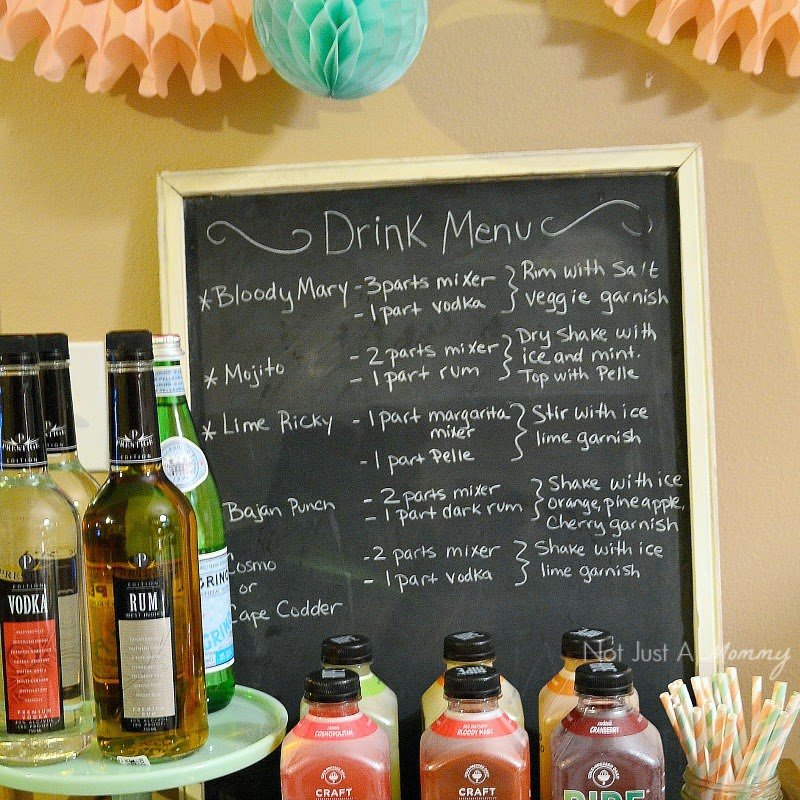 Drink Menu
*Bloody Mary - 3 parts mixer
- 1 part vodka
Rim with Salt
veggie garnish
*Mojito - 2 parts mixer
- 1 part rum
Dry Shake with
ice and mint.
Top with Pelle
*Lime Ricky - 1 part margarita
mixer
- 1 part Pelle
Stir with ice
lime garnish
Bajan Punch - 2 parts mixer
- 1 part dark rum
Shake with ice
orange, pineapple,
cherry garnish
Cosmo
or
Cape Codder
- 2 parts mixer
- 1 part vodka
Shake with ice
lime garnish
Not Just A Mommy
P
EDITION
VODKA
P
PRESTIGE
EDITION
P
EDITION
RUM
WEST INDIES
COSMOPOLITAN
CRAFT
BLOODY MARY
CRAFT
CRANBERRY